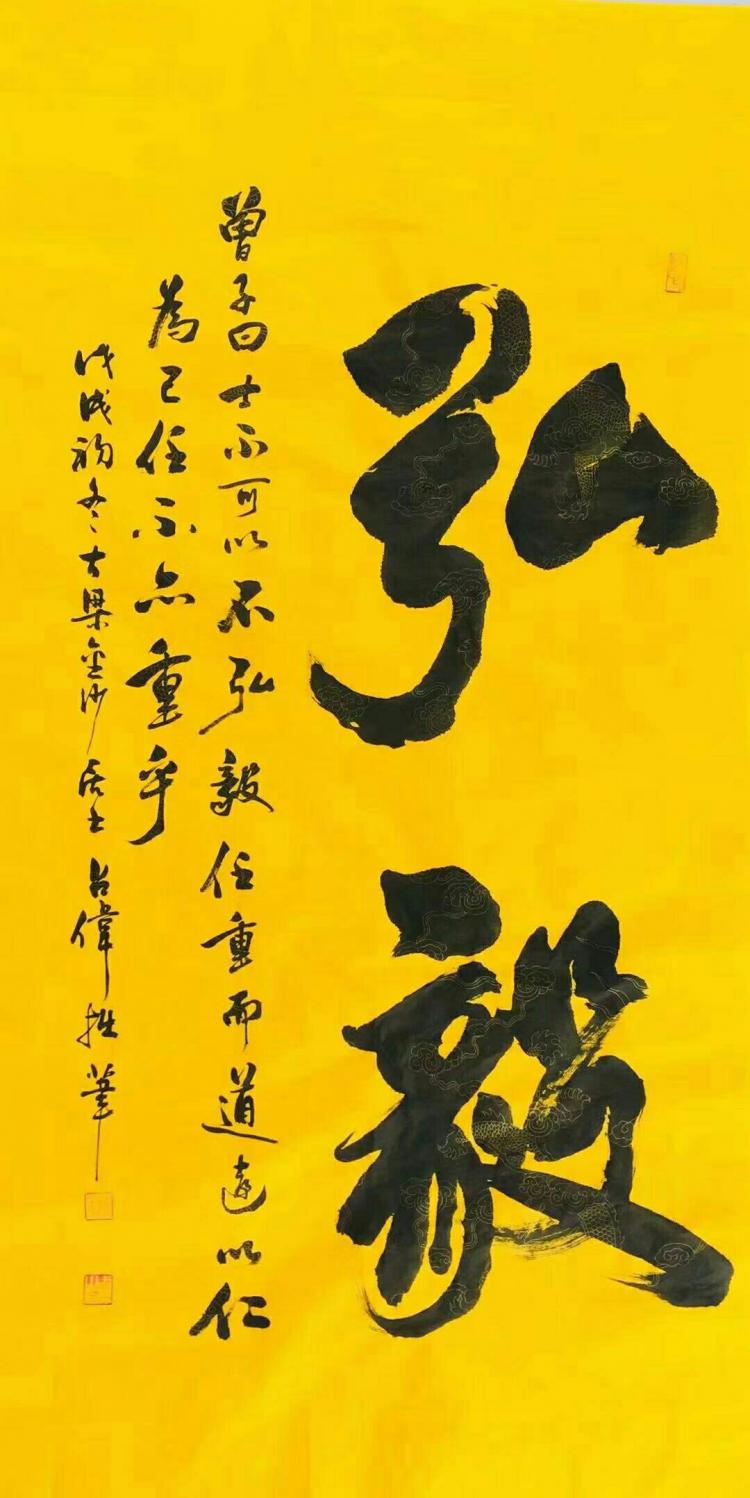 弘毅
曾子曰士不可以不弘毅任重而道遠以仁
為己任不亦重乎
戊戌初冬古梁金沙居士占偉拙筆